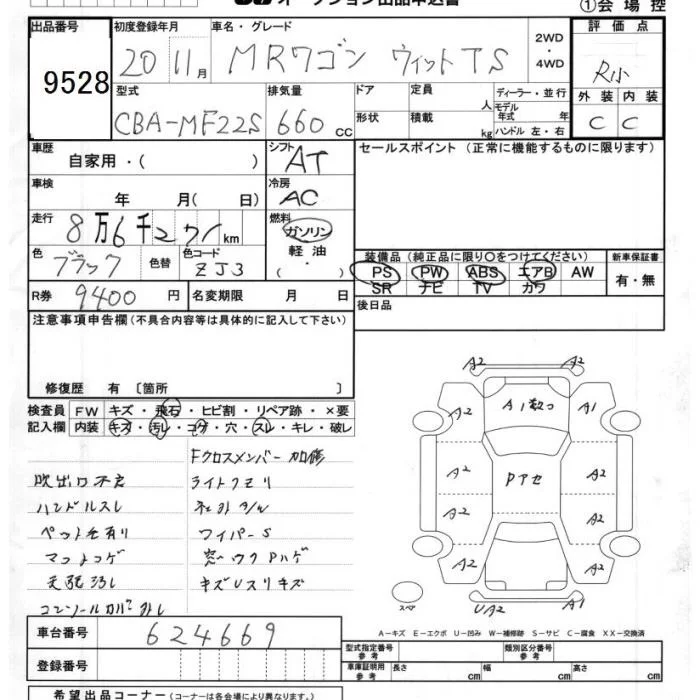 オークション出品申込書
①会場控
出品番号 9528
初度登録年月 20 11月
車名・グレード MRワゴン ウィット TS
2WD・4WD
評価点 R小
外装 内装
C C
型式 CBA-MF22S
排気量 660 CC
ドア
形状
定員 人
積載 kg
ディーラー・並行
モデル年式 年
ハンドル 左・右
車歴 自家用・( )
シフト AT
セールスポイント (正常に機能するものに限ります)
車検 年 月( 日)
冷房 AC
走行 8万6千271km
燃料 ガソリン・軽油
色 ブラック 色替 色コード ZJ3
装備品 (純正品に限り〇をつけてください)
新車保証書
PS PW ABS エアB AW
SR ナビ TV カワ
有・無
R券 9400円 名変期限 月 日
後日品
注意事項申告欄 (不具合内容等は具体的に記入して下さい)
修復歴 有 〔箇所 〕
検査員記入欄
FW キズ・飛石・ヒビ割・リペア跡・×要
内装 キズ・汚レ・コゲ・穴・スレ・キレ・破レ
Fクロスメンバー加修
吹出口不良 ライトクモリ
ハンドルスレ
ペット毛有り ワイパーS
マットコゲ
天張汚レ キズUスリキズ
A2 A2
A2 A1 A1
Pアセ
A2 A2
A2 A2
A2 A2
スペア
UA2 A1
A-キズ E-エクボ U-凹み W-補修跡 S-サビ C-腐食 XX-交換済
車台番号 624669
型式指定番号 参考
類別区分番号 参考
登録番号
車庫証明用 参考 長さ cm 幅 cm 高さ cm
希望出品コーナー (コーナーは各会場により異なります。)